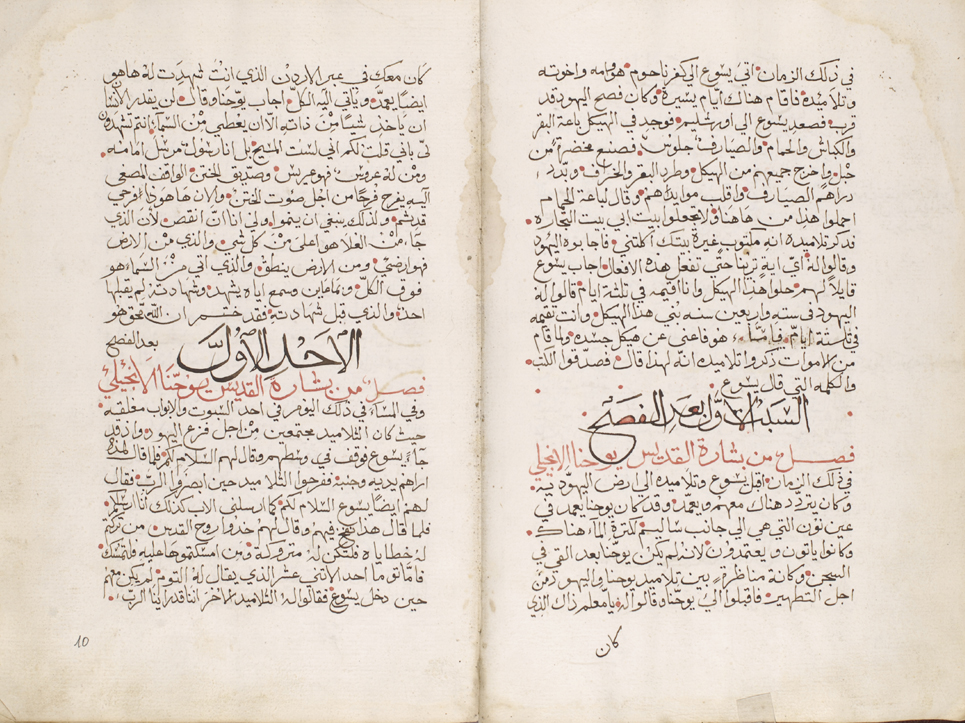 في ذلك الزمان اتي يسوع الي كفرناحوم هو وامه واخوته
وتلاميذه فاقام هناك ايام يسيرة وكان فصح اليهود قد
قرب فصعد يسوع الي اورشليم فوجد في الهيكل باعة البقر
والكباش والحمام والصيارف جلوس فصنع مخصرة من
حبل واخرج جميعهم من الهيكل وطرد البقر والخراف وبدد
دراهم الصيارف واقلب موايدهم وقال لباعة الحمام
احملوا هذا من هاهنا ولا تجعلوا بيت ابي بيت التجاره
فذكر تلاميذه انه مكتوب غيرة بيتك اكلتني فاجابوه اليهود
وقالوا له اي اية ترينا حتي تفعل هذه الافعال اجاب يسوع
قايلا لهم حلوا هذا الهيكل وانا اقيمه في ثلثة ايام قالوا له
اليهود في سته واربعين سنه بني هذا الهيكل وانت تقيمه
في ثلثة ايام هو فاعني عن هيكل جسده ولما قام
من الاموات ذكروا تلاميذه انه لهذا قال فصدقوا الكتب
والكلمه التي قال يسوع
السبة الاول بعد الفصح
فصل من بشارة القديس يوحنا الانجيلي
في ذلك الزمان اقبل يسوع وتلاميذه الي ارض اليهوديه
وكان يتردد هناك معهم ويعمد وقد كان يوحنا يعمد في
عين نون التي هي الي جانب ساليم لكثرة الماء هناك
وكانوا ياتون ويعتمدون لانه لم يكن يوحنا بعد القي في
السجن وكانه مناظرة بين تلاميذ يوحنا واليهود من
اجل التطهير فاقبلوا الي يوحنا وقالوا له يا معلم ذاك الذي
كان
كان معك في عبر الاردن الذي انت شهدت له ها هو
ايضا يعمد وياتي اليه الكل اجاب يوحنا وقال لن يقدر الانسان
ان ياخذ شيا من ذاته الا ان يعطي من السما انتم تشهدون
لي باني قلت لكم اني لست المسيح بل انا رسول مرسل امامه
ومن له عروس فهو عريس وصديق الختن الواقف المصغي
اليه يفرح فرحا من اجل صوت الختن والان ها هوذا فرحي
قد تم ولذلك ينبغي ان ينموا ولي انا ان انقص لان الذي
جا من العلا هو اعلي من كل شي والذي من الارض
فهو ارضي ومن الارض ينطق والذي اتي من السماء هو
فوق الكل وبما عاين وسمع اياه يشهد وشهادته لم يقبلها
احد والذي قبل شهادته فقد ختم ان الله محق هو
الاحد الاول بعد الفصح
فصل من بشارة القديس يوحنا الانجيلي
وفي المساء في ذلك اليوم في احد السبوت والابواب مغلقه
حيث كان التلاميذ مجتمعين من اجل فزع اليهود واذ قد
جاء يسوع فوقف في وسطهم وقال لهم السلام لكم فلما قال هذه
اراهم يديه وجنبه ففرحوا التلاميذ حين ابصروا الرب فقال
لهم ايضا يسوع السلام لكم كما ارسلني الاب كذلك انا ارسلكم
فلما قال هذا نفخ فيهم وقال لهم خذوا روح القدس من تركتم
له خطاياه فلتكن له متروكة ومن امسكتموها عليه فلتمسك
فاما توما احد الاثني عشر الذي يقال له التوم لم يكن معهم
حين دخل يسوع فقالوا له التلاميذ الاخر اننا قد راينا الرب
10